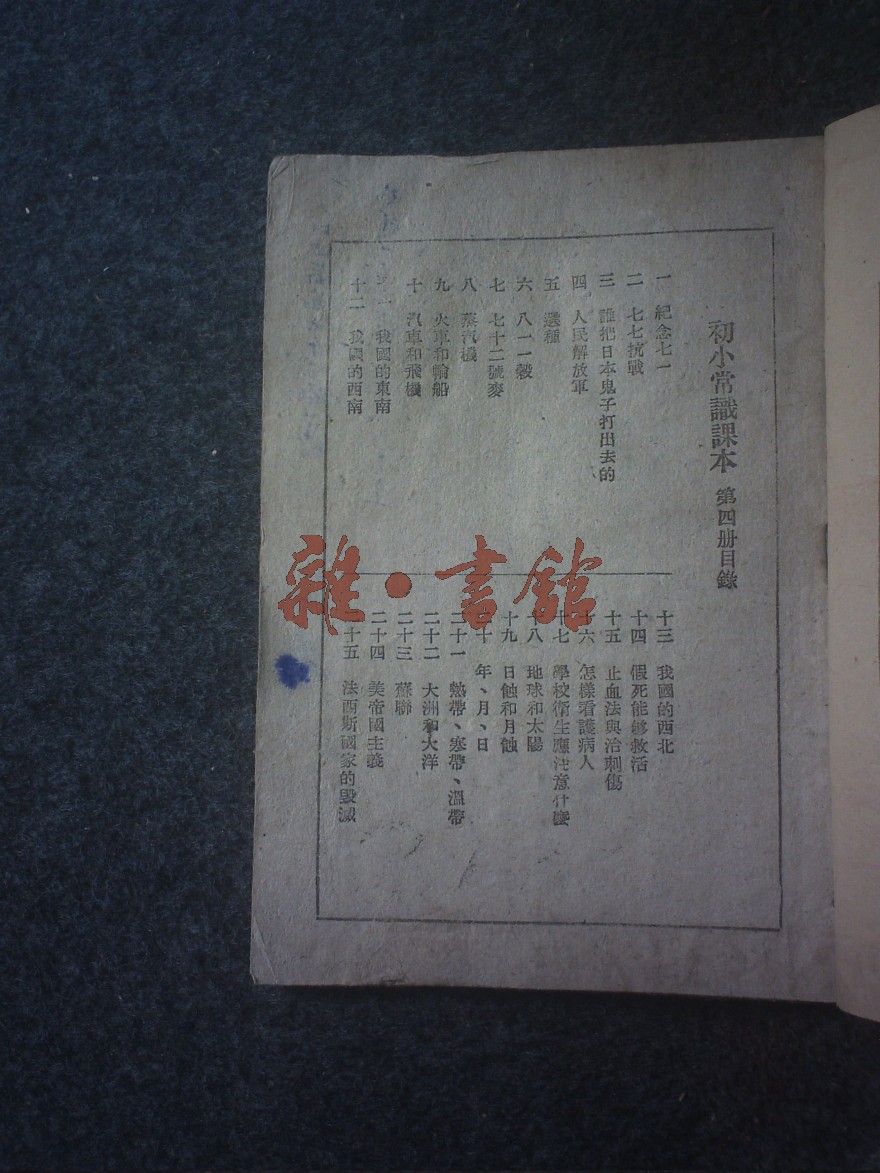 初小常識課本 第四册目錄
一 紀念七一
二 七七抗戰
三 誰把日本鬼子打出去的
四 人民解放軍
五 選種
六 八一一穀
七 七十二號麥
八 蒸汽機
九 火車和輪船
十 汽車和飛機
十一 我國的東南
十二 我國的西南
十三 我國的西北
十四 假死能够救活
十五 止血法與治刺傷
十六 怎樣看護病人
十七 學校衛生應注意什麼
十八 地球和太陽
十九 日蝕和月蝕
二十 年、月、日
二十一 熱帶、寒帶、溫帶
二十二 大洲和大洋
二十三 蘇聯
二十四 美帝國主義
二十五 法西斯國家的毀滅
雜·書館